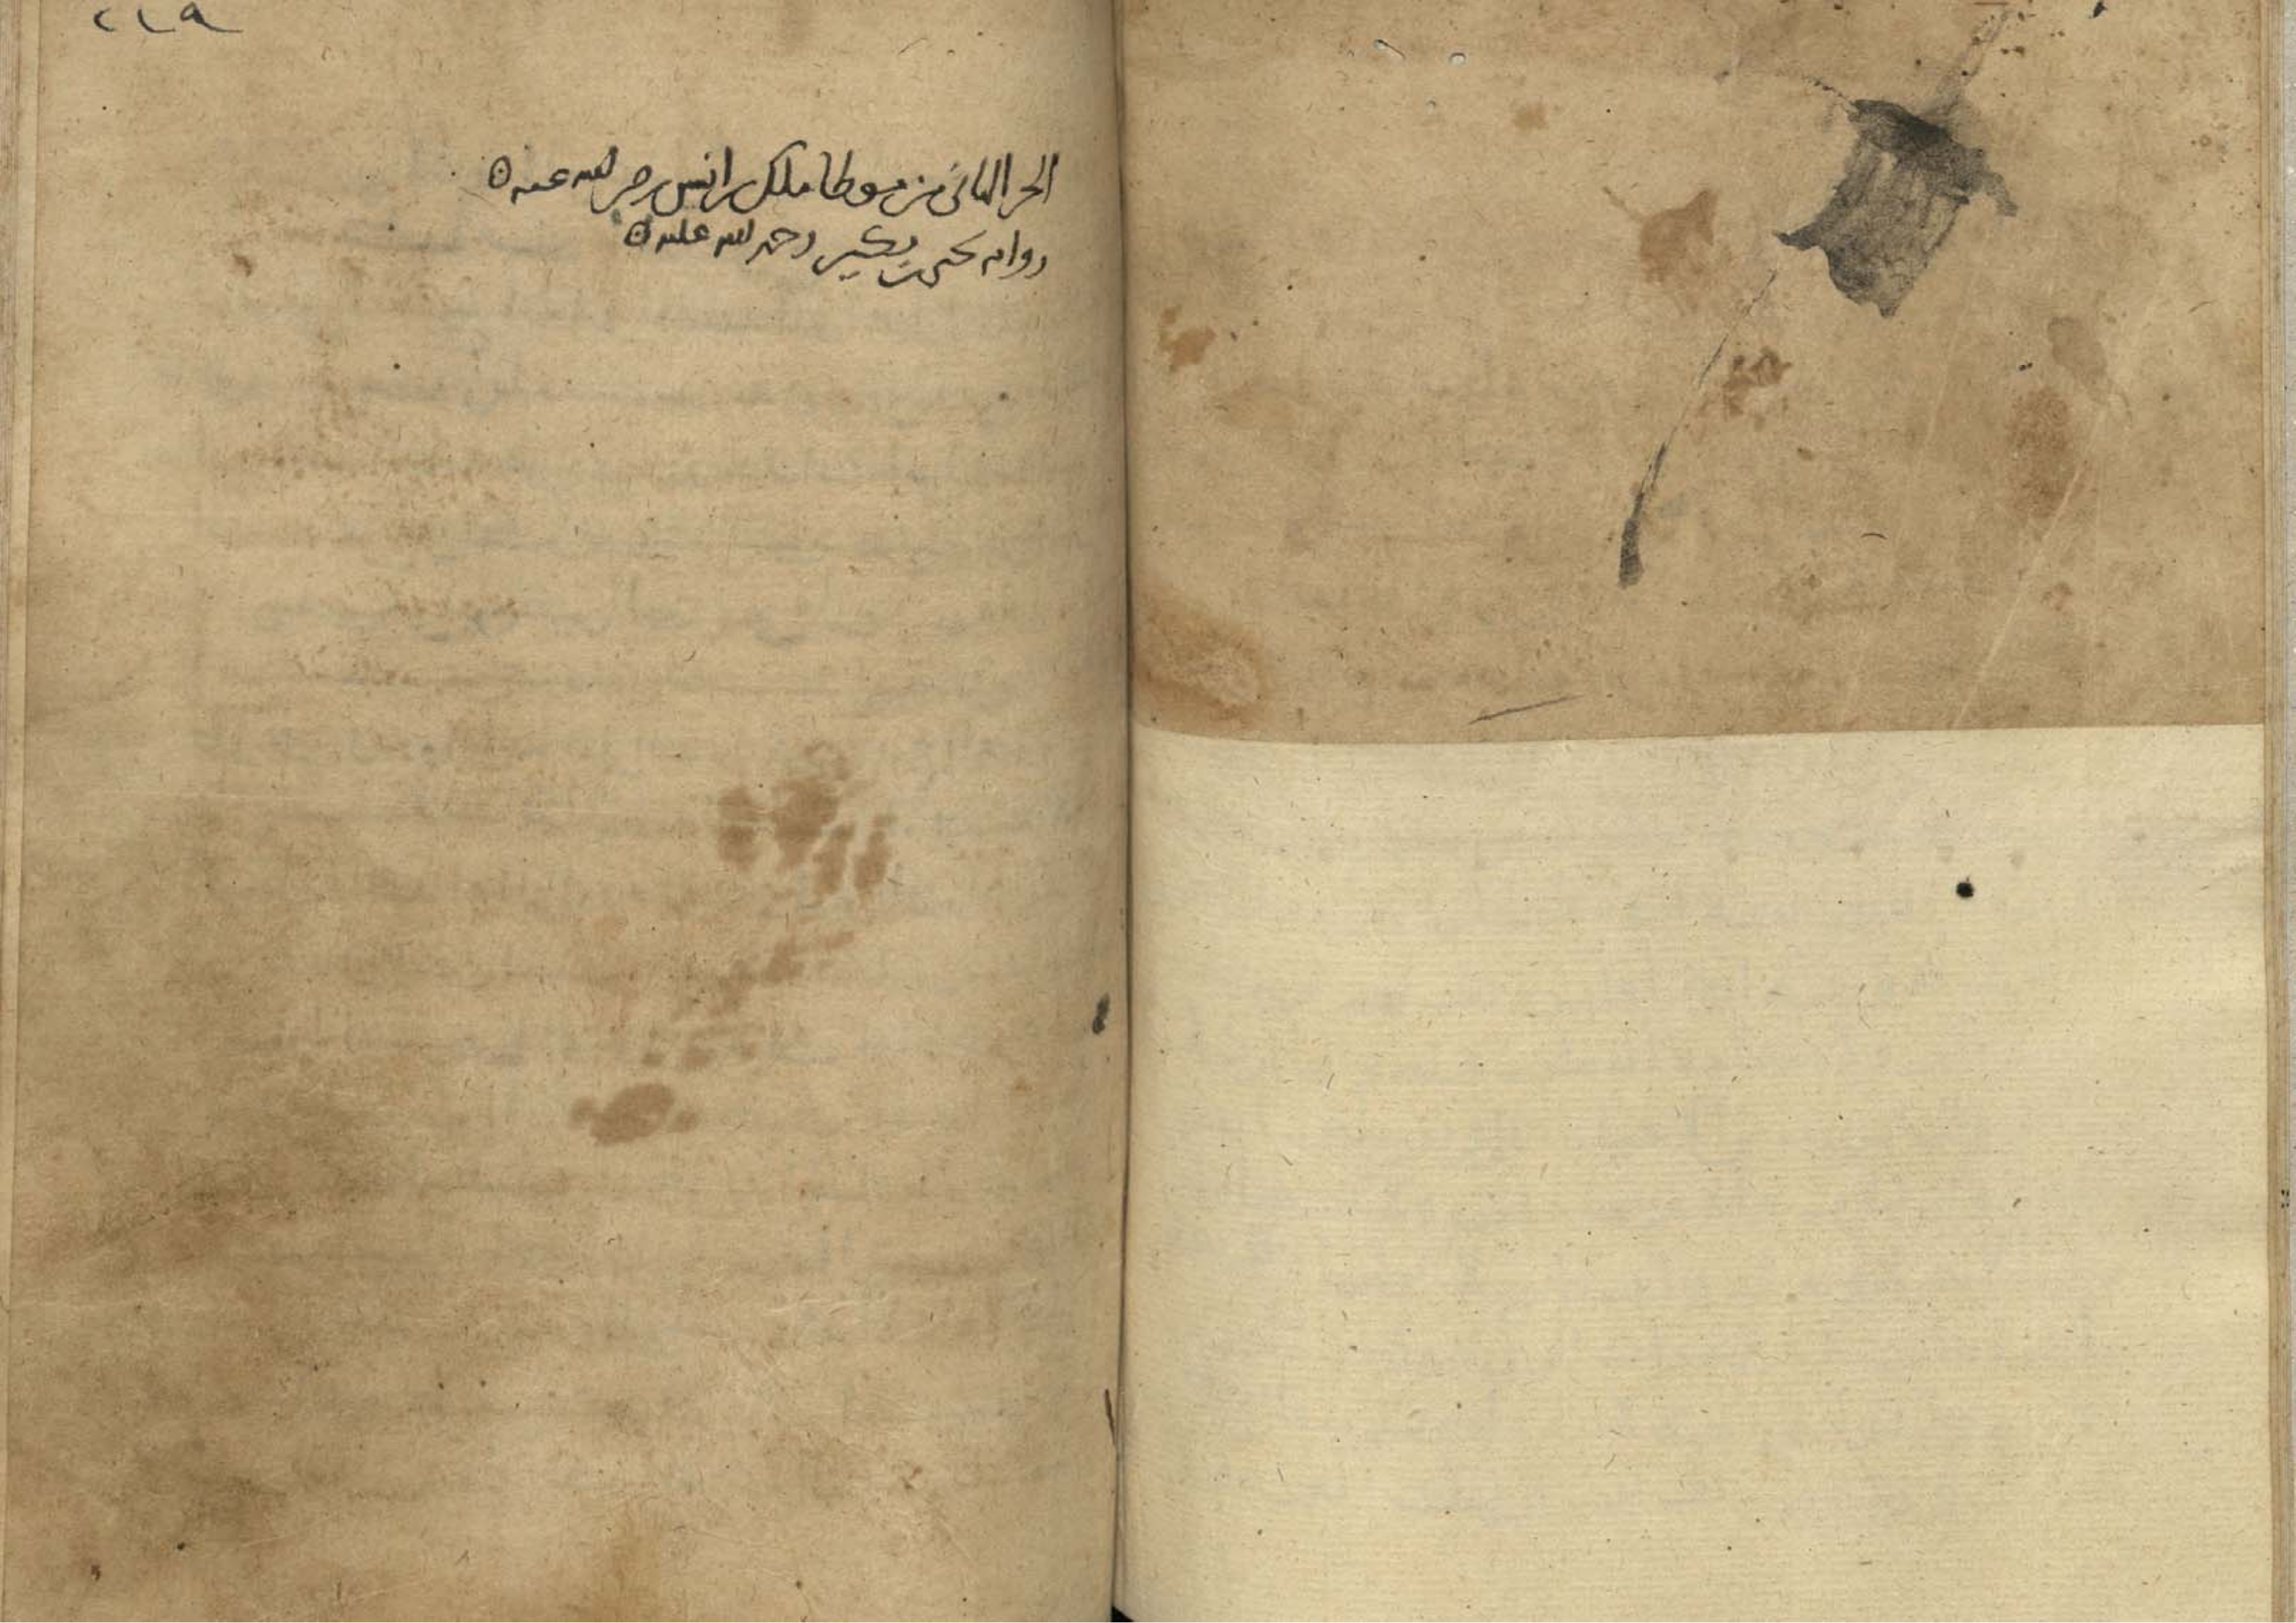 ٢١٩
الجزء الثاني من موطا ملك بن انس رضي الله عنه
رواية يحيى بن بكير رحمة الله عليه